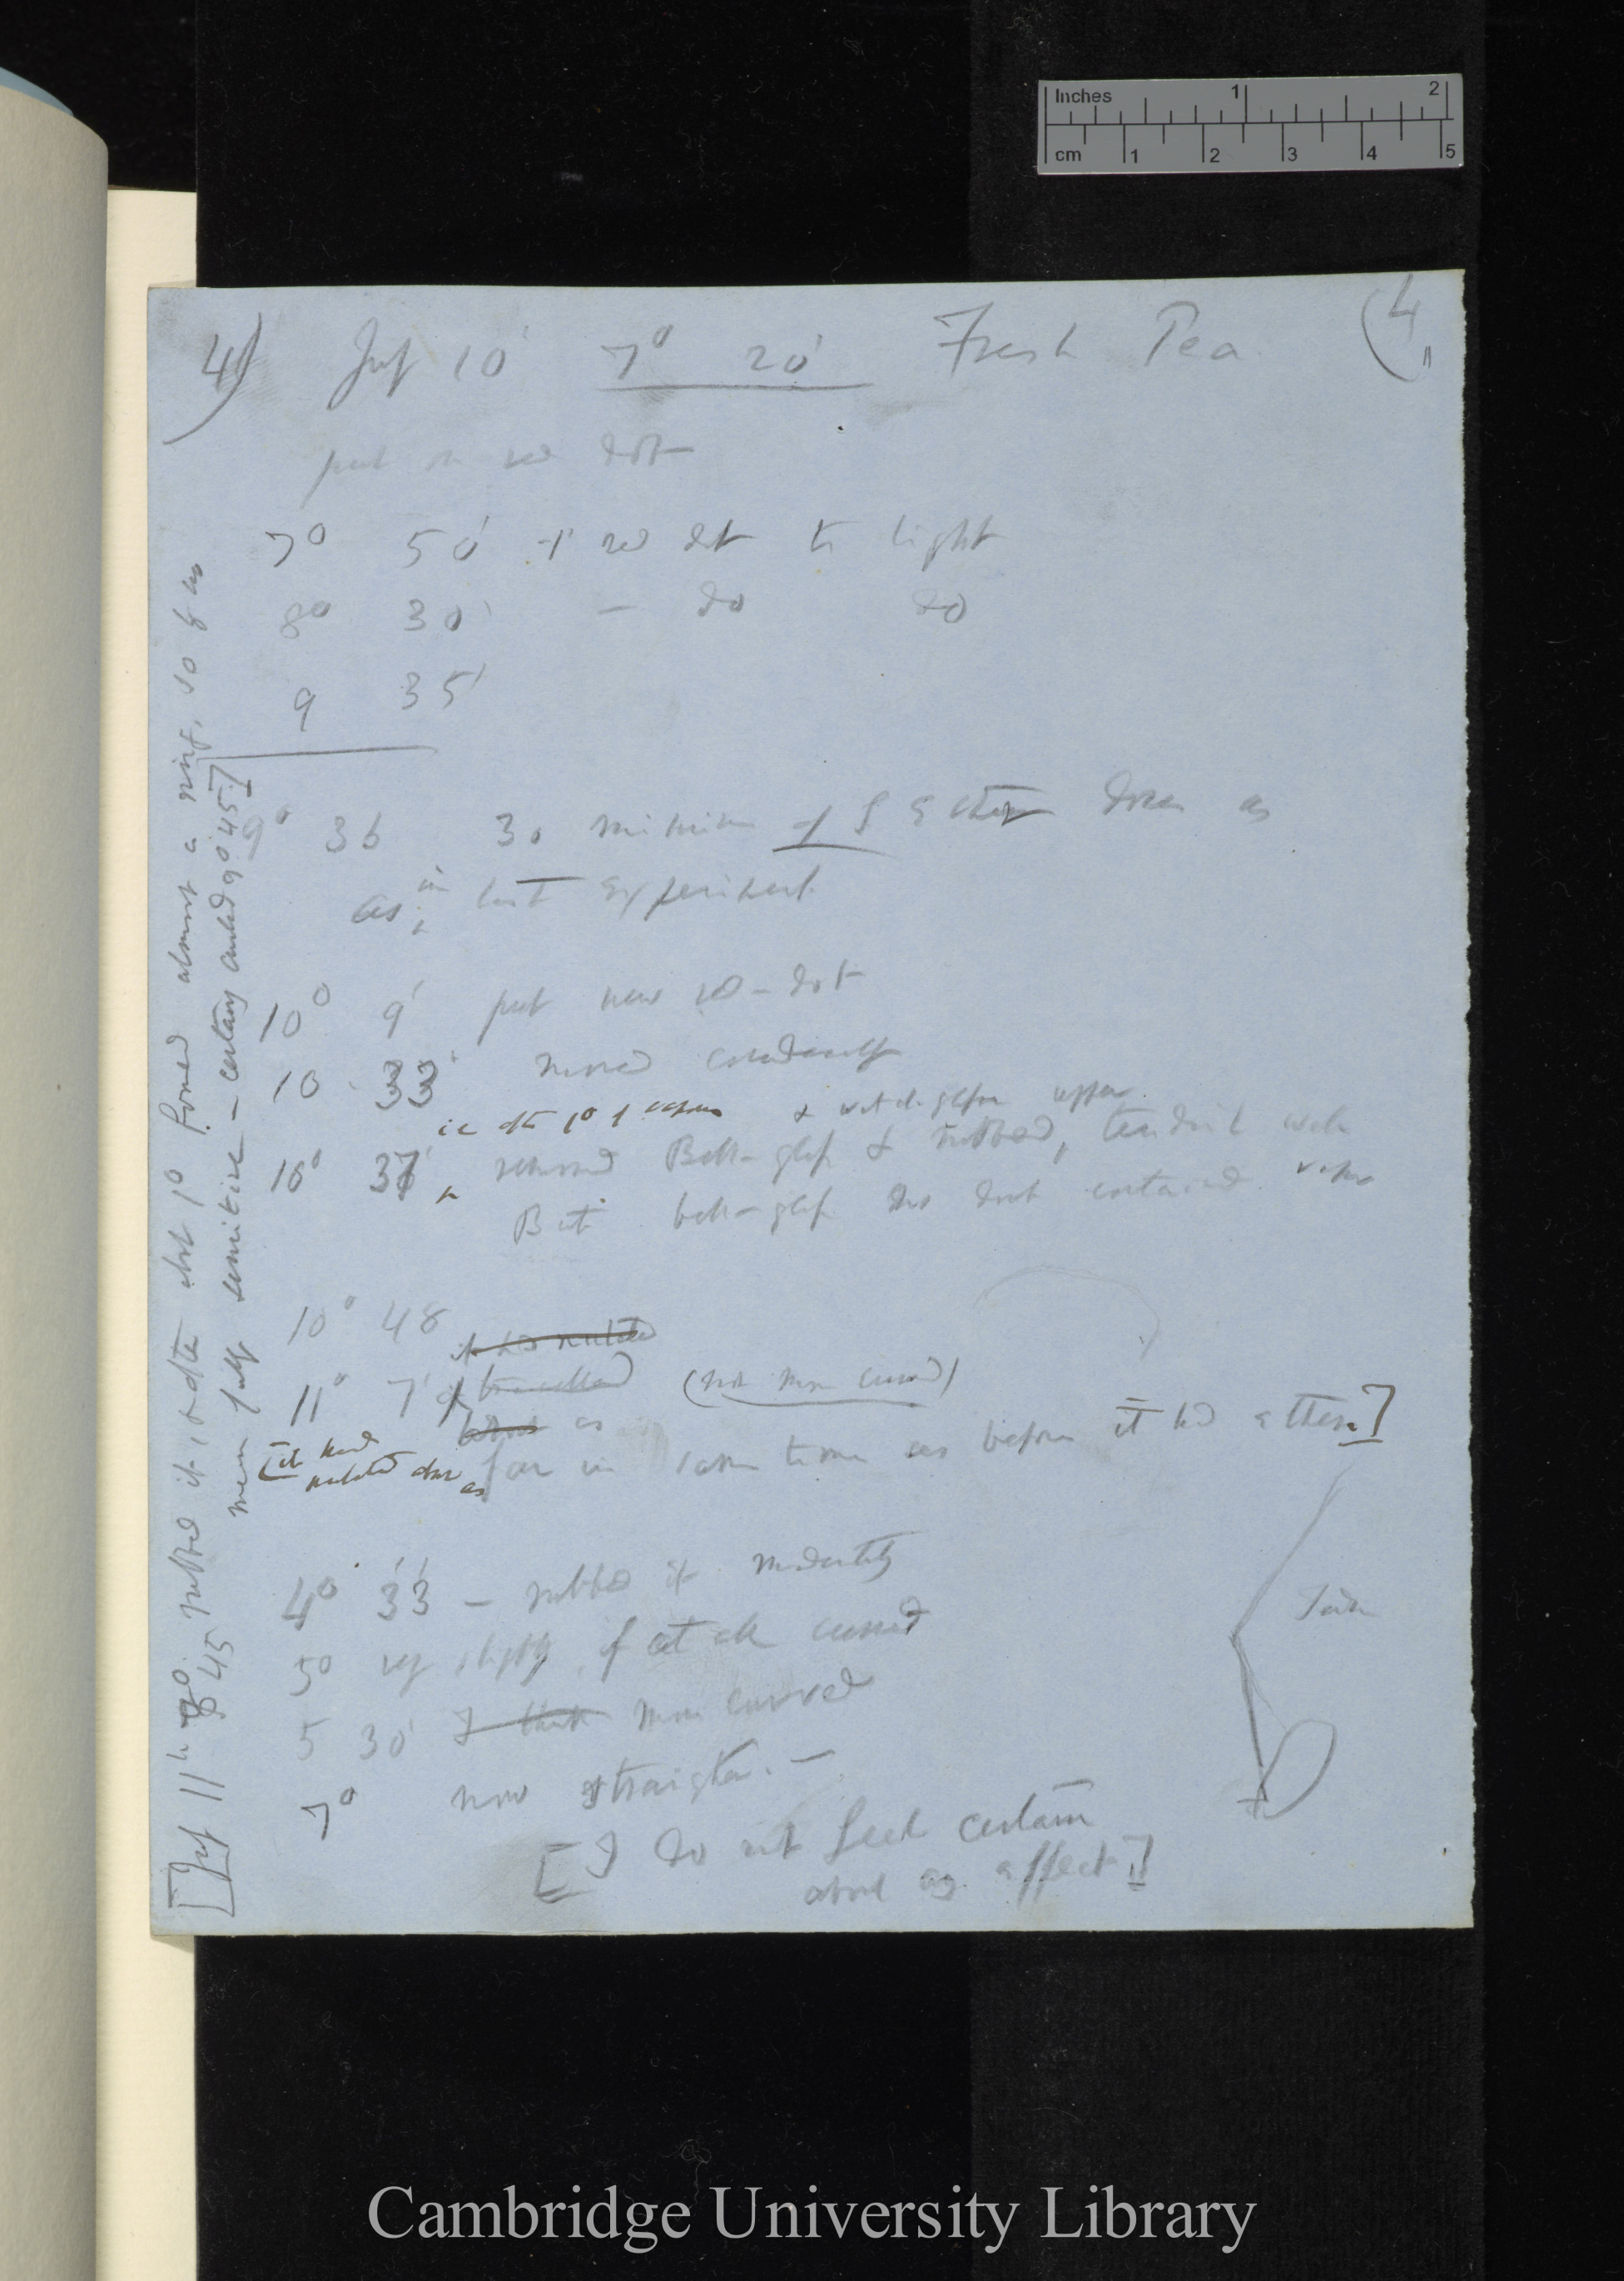 Inches 1 2
cm 1 2 3 4 5
4) July 10' 7° 20' Fresh Pea (4
put on red dot
7° 50' red dot to light
8° 30' — do do
9 35'
9° 36 30 minims of S Ether down as
as in last experiment
10° 9' put new red-dot
10 33' moved
ie after 1° of vapour & watch-glass
10° 37' removed Bell-glass & rubbed, tendril
But bell-glass no doubt contained vapour
10° 48
it had nutated
11° 7' travelled (not more curved)
as
[it had nutated as far in same time as before it had ether]
4° 33' — rubbed it moderately
5° very slightly, if at all curved
5 30' I think more curved
7° now straighter. —
[I do not feel certain
about any effect]
[July 11th rubbed it & after abt 1° formed almost a ring, so has
been fully sensitive — certainly acted 9° 45']
Cambridge University Library